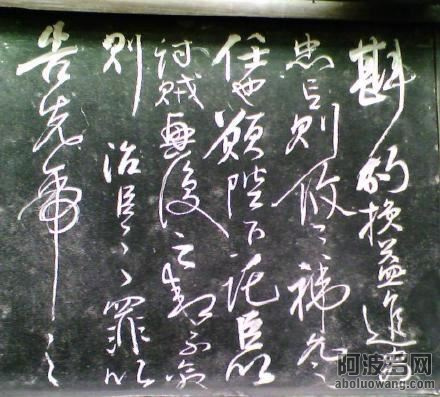 斟酌損益進盡
忠言則攸之禕允之
任也願陛下託臣以
討賊興復之效不效
則治臣之罪以
告先帝之
阿波罗网
aboluowang.com